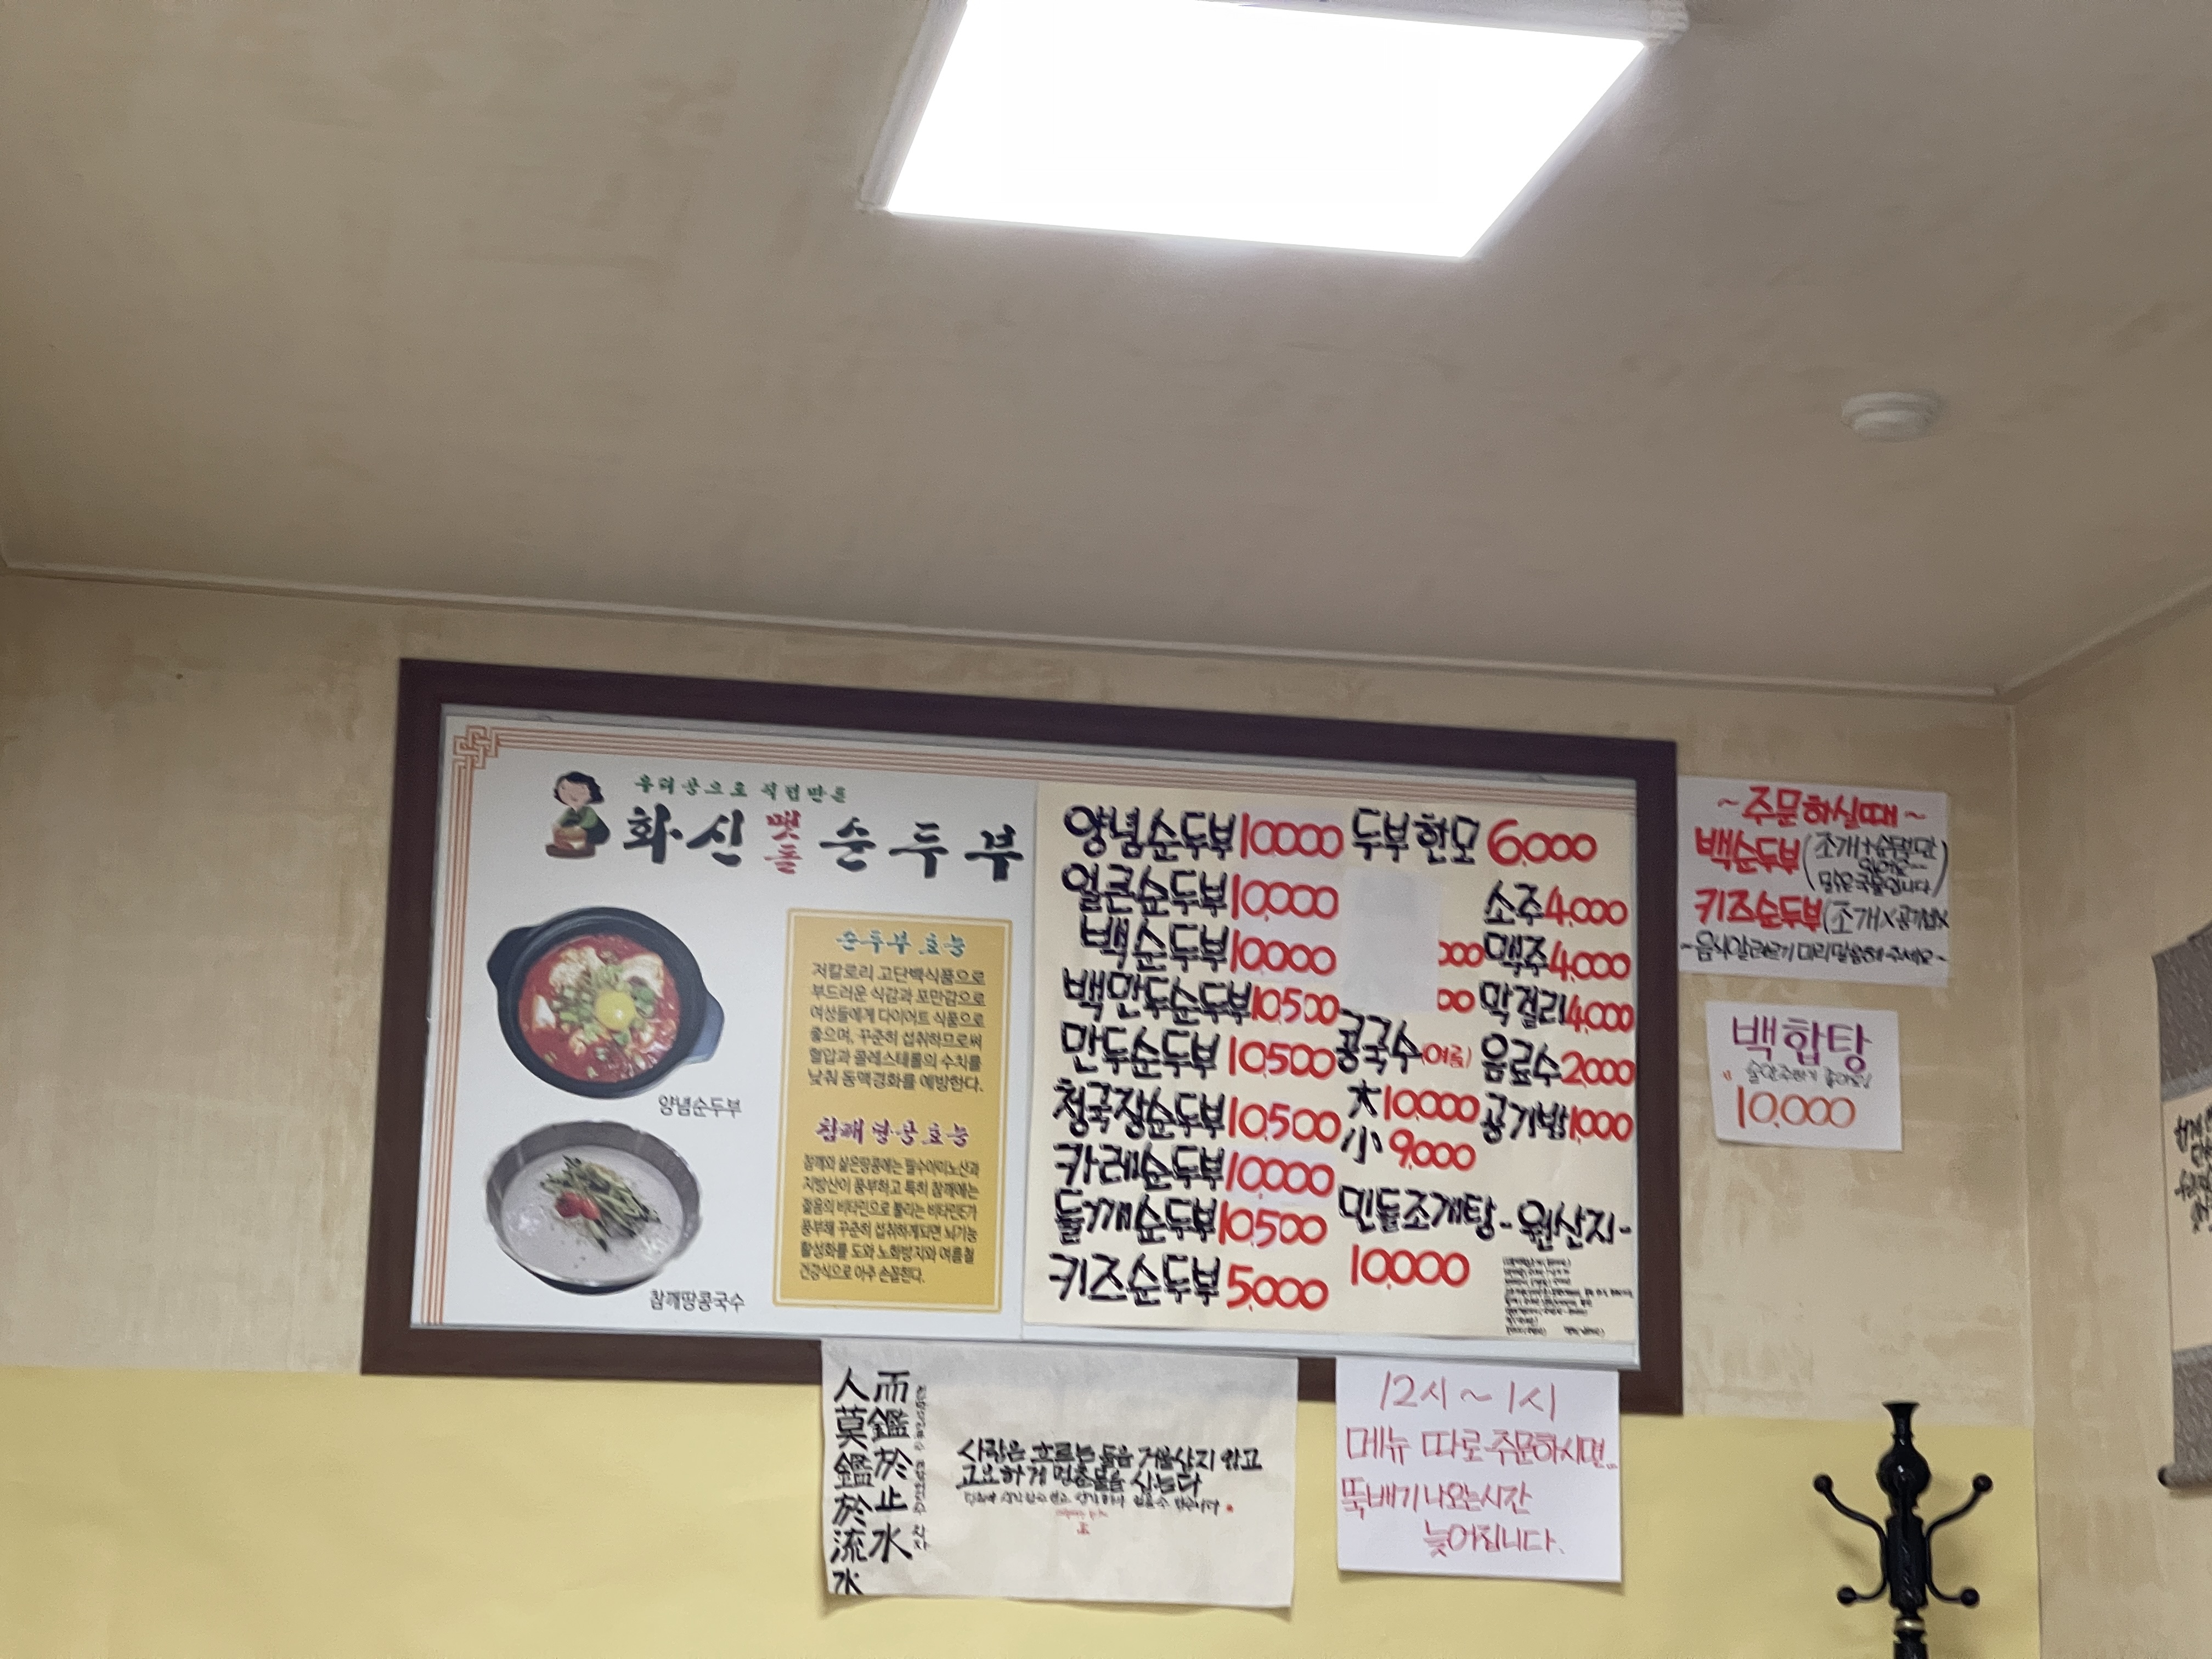 우리콩으로 직접만든
화신 맷돌 순두부
양념순두부
참깨땅콩국수
순두부 효능
저칼로리 고단백식품으로
부드러운 식감과 포만감으로
여성들에게 다이어트 식품으로
좋으며, 꾸준히 섭취하므로써
혈압과 콜레스테롤의 수치를
낮춰 동맥경화를 예방한다.
참깨 땅콩 효능
참깨와 삶은땅콩에는 필수아미노산과
지방산이 풍부하고 특히 참깨에는
젊음의 비타민으로 불리는 비타민E가
풍부해 꾸준히 섭취하게되면 뇌기능
활성화를 도와 노화방지와 여름철
건강식으로 아주 손꼽힌다.
양념순두부 10,000
얼큰순두부 10,000
백순두부 10,000
백만두순두부 10,500
만두순두부 10,500
청국장순두부 10,500
카레순두부 10,000
들깨순두부 10,500
키즈순두부 5,000
두부한모 6,000
콩국수(여름)
大 10,000
小 9,000
민들조개탕
10,000
소주 4,000
맥주 4,000
막걸리 4,000
음료수 2,000
공기밥 1,000
-원산지-
~주문하실때~
백순두부(조개+순두부만
맑은국물입니다)
키즈순두부(조개X공기밥X
~음식알레르기 미리말씀해주세요~
백합탕
10,000
人莫鑑於流水
而鑑於止水
사람은 흐르는 물을 거울삼지 않고
고요하게 멈춘물을 삼는다
12시~1시
메뉴 따로주문하시면..
뚝배기나오는시간
늦어집니다.